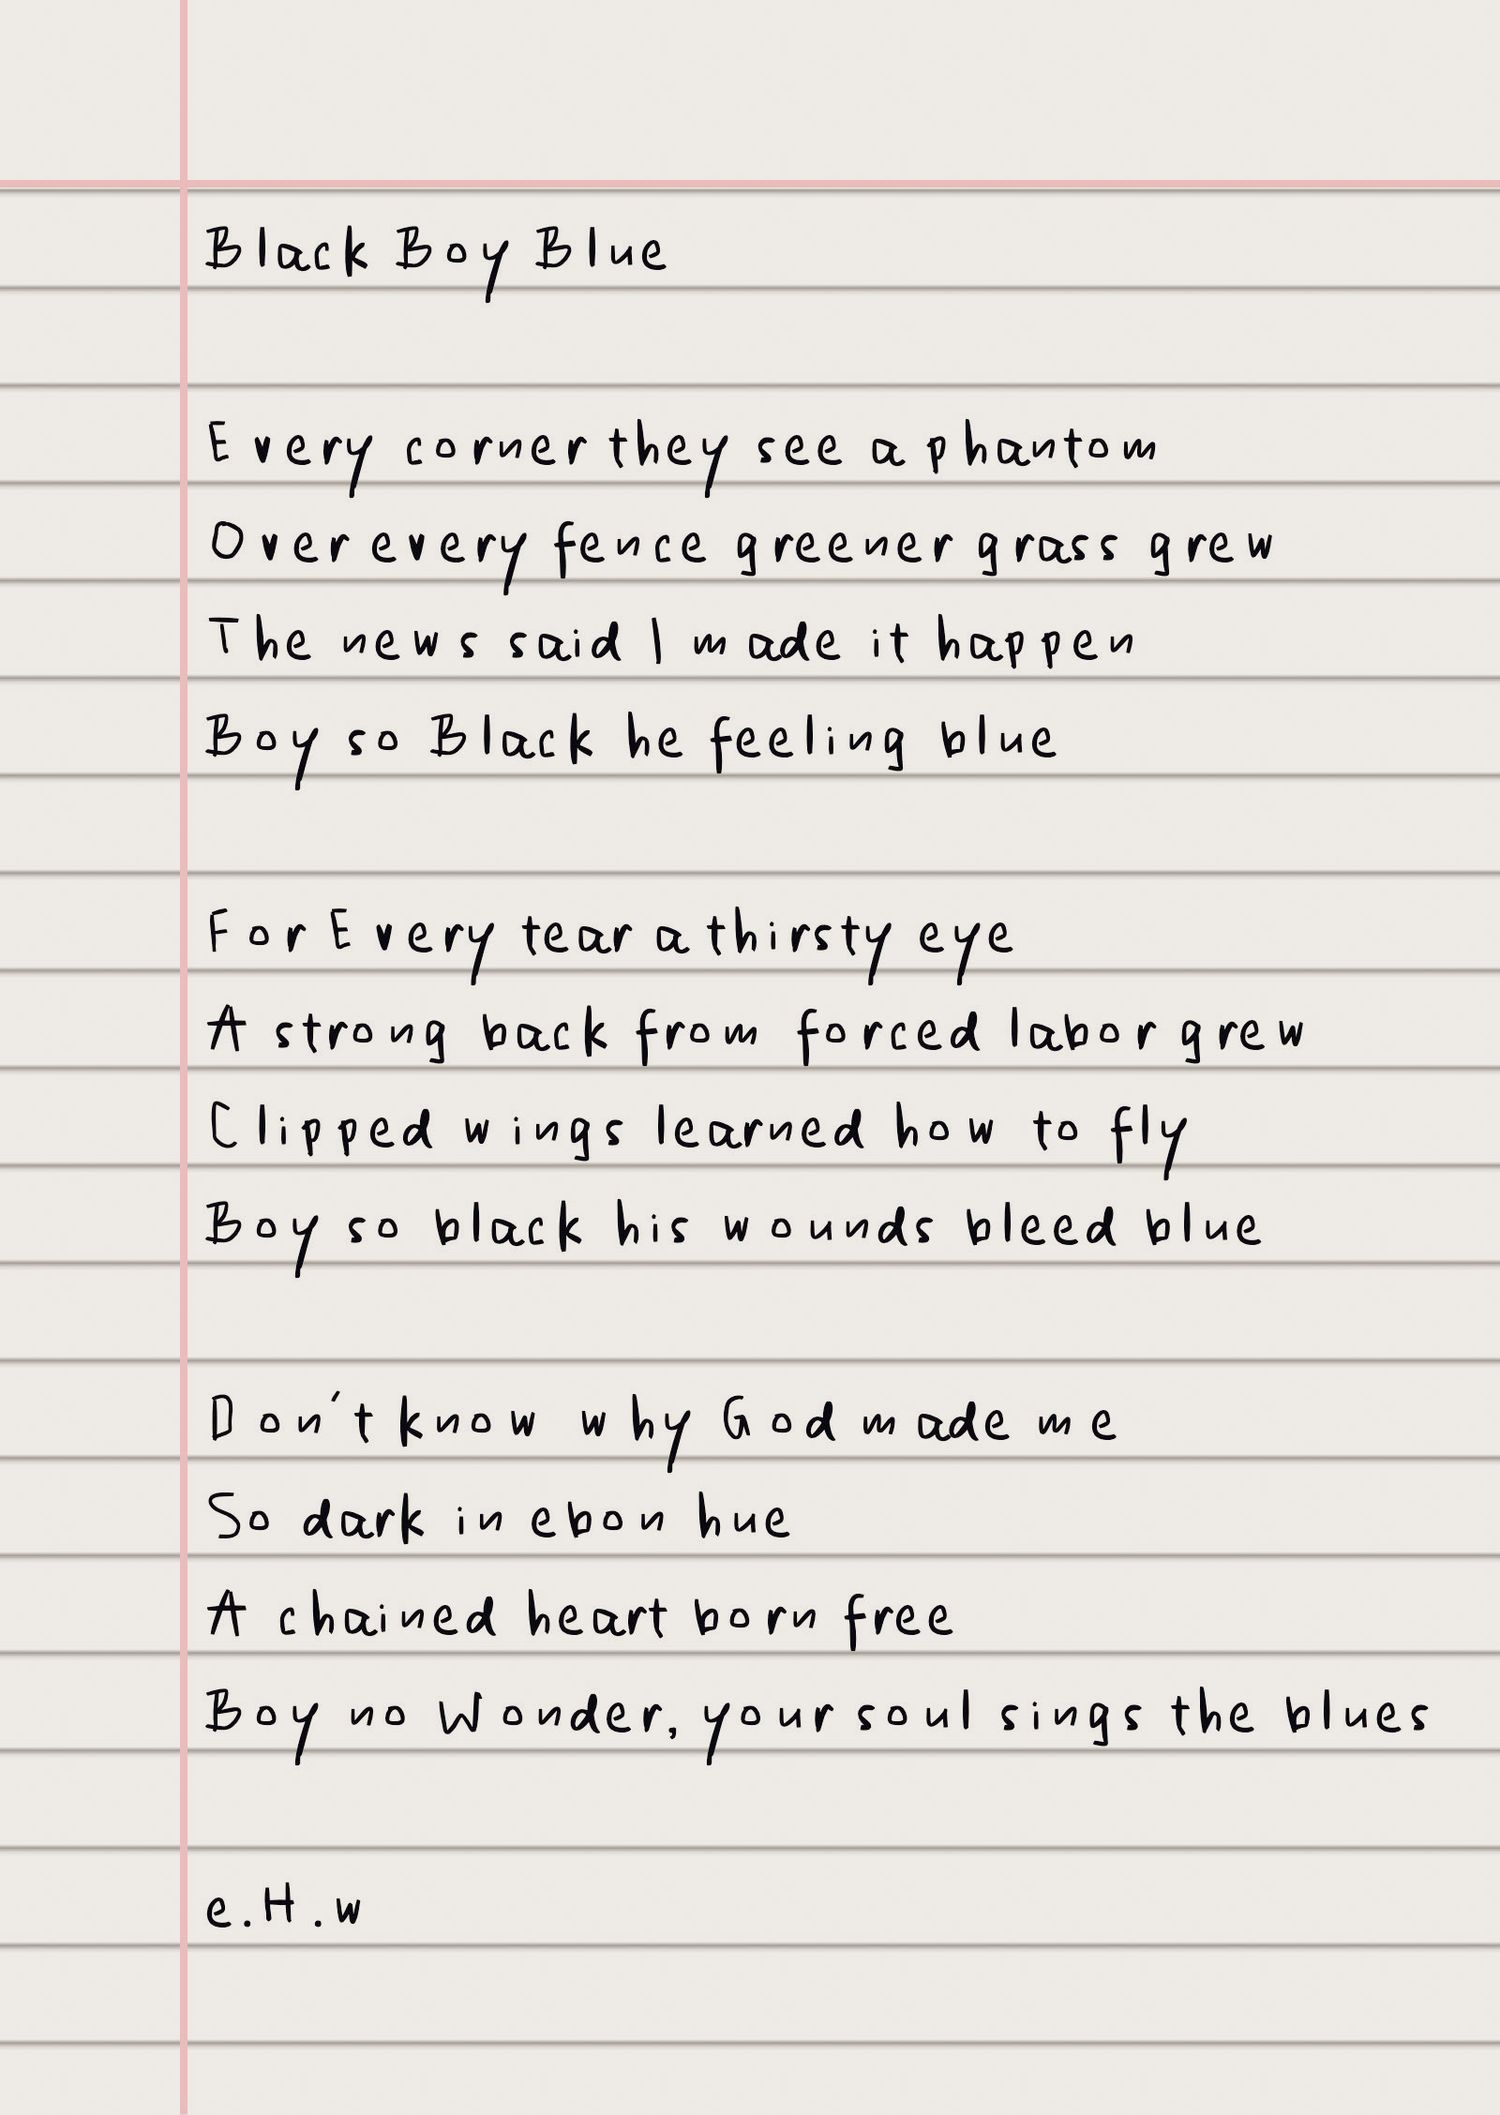 Black Boy Blue
Every corner they see a phantom
Over every fence greener grass grew
The news said I made it happen
Boy so Black he feeling blue
For Every tear a thirsty eye
A strong back from forced labor grew
Clipped wings learned how to fly
Boy so black his wounds bleed blue
Don't know why God made me
So dark in ebon hue
A chained heart born free
Boy no Wonder, your soul sings the blues
e.H.w